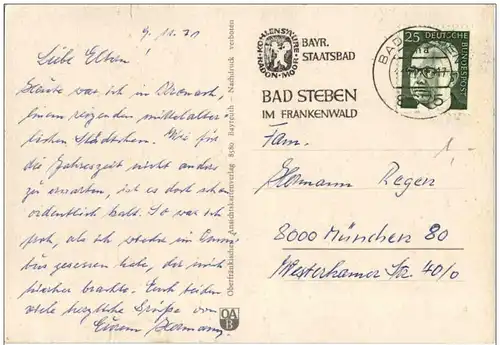 9.11.71
Liebe Eltern!
Heute war ich in Kronach,
einem reizenden mittelalter-
lichen Städtchen. Wie für
die Jahreszeit nicht anders
zu erwarten, ist es doch schon
ordentlich kalt. So war ich
froh, als ich wieder im Omni
bus gesessen habe, der mich
hierher brachte. Euch beiden
viele herzliche Grüße von
Eurem Hermann
Oberfränkischer Ansichtskartenverlag 8580 Bayreuth — Nachdruck verboten
OA
B
KOHLENSÄURE
RADON-MOOR
BAYR.
STAATSBAD
BAD STEBEN
IM FRANKENWALD
BAD STEBEN
25
DEUTSCHE
BUNDESPOST
1.-
Fam.
Hermann Regen
8000 München 80
Westerhamer Str. 40/0